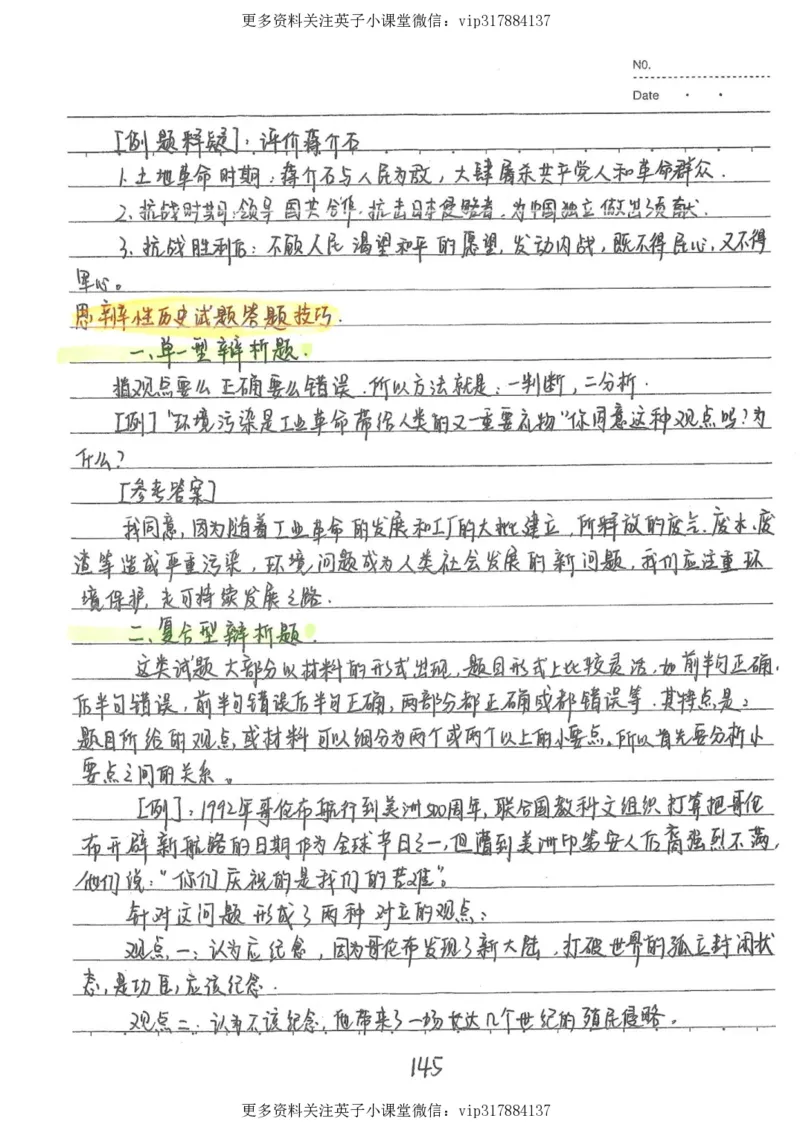 更多资料关注英子小课堂微信：vip317884137
NO.
Date
[例题释疑]：评价蒋介石
1.土地革命时期：蒋介石与人民为敌，大肆屠杀共产党人和革命群众.
2.抗战时期：领导国共合作，抗击日本侵略者，为中国独立做出须献.
3.抗战胜利后：不顾人民渴望和平的愿望，发动内战，既不得民心，又不得
军心。
思辨性历史试题答题技巧.
一、单一型辩析题.
指观点要么正确要么错误.所以方法就是：一判断，二分析.
[例]"环境污染是工业革命带给人类的又一重要礼物"你同意这种观点吗？为
什么？
[参考答案]
我同意，因为随着工业革命的发展和工厂的大批建立，所释放的废气、废水、废
渣等造成严重污染，环境问题成为人类社会发展的新问题，我们应注重环
境保护，走可持续发展之路.
二、复合型辩析题.
这类试题大部分以材料的形式出现，题目形式上比较灵活，如前半句正确，
后半句错误，前半句错误后半句正确，两部分都正确或都错误等.其特点是：
题目所给的观点或材料可以细分为两个或两个以上的小要点。所以首先要分析小
要点之间的关系。
[例]：1992年哥伦布航行到美洲500周年，联合国教科文组织打算把哥伦
布开辟新航路的日期作为全球节日之一，但遭到美洲印第安人后裔强烈不满，
他们说："你们庆祝的是我们的苦难"。
针对这问题形成了两种对立的观点：
观点一：认为应纪念，因为哥伦布发现了新大陆，打破世界的孤立封闭状
态，是功臣，应该纪念.
观点二：认为不该纪念，他带来了一场长达几个世纪的殖民侵略。
145
更多资料关注英子小课堂微信：vip317884137